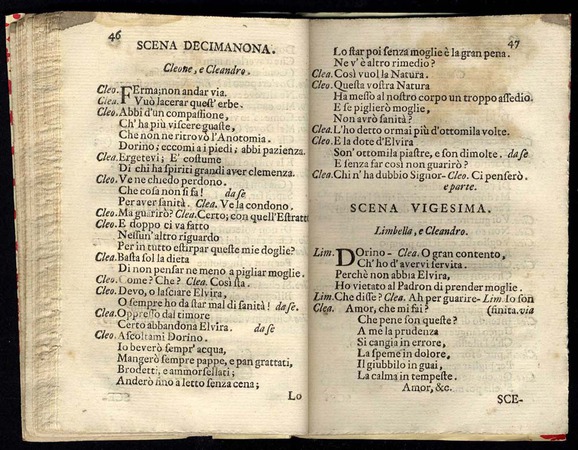 46
SCENA DECIMANONA.
Cleone, e Cleandro.
Cleo. FErma; non andar via.
Clea. Vuò lacerar quest' erbe.
Cleo. Abbi d'un compassione,
Ch'ha più viscere guaste,
Che non ne ritrovò l'Anotomia.
Dorino; eccomi a i piedi; abbi pazienza.
Clea. Ergetevi; E' costume
Di chi ha spiriti grandi aver clemenza.
Cleo. Ve ne chiedo perdono.
Che cosa non si fa! da se
Per aver sanità. Clea. Ve la condono.
Cleo. Ma guarirò? Clea. Certo; con quell'Estratto
Cleo. E doppo ci va fatto
Nessun'altro riguardo
Per in tutto estirpar queste mie doglie?
Clea. Basta sol la dieta
Di non pensar ne meno a pigliar moglie.
Cleo. Come? Che? Clea. Così sta.
Cleo. Devo, o lasciare Elvira,
O sempre ho da star mal di sanità! da se.
Clea. Oppresso dal timore
Certo abbandona Elvira. da se
Cleo. Ascoltami Dorino.
Io beverò sempr' acqua,
Mangerò sempre pappe, e pan grattati,
Brodetti, e ammorsellati;
Anderò sino a letto senza cena;
Lo
47
Lo star poi senza moglie è la gran pena.
Ne v'è altro rimedio?
Clea. Così vuol la Natura.
Cleo. Questa vostra Natura
Ha messo al nostro corpo un troppo assedio.
E se piglierò moglie,
Non avrò sanità?
Clea. L'ho detto ormai più d'ottomila volte.
Cleo. E la dote d'Elvira
Son' ottomila piastre, e son dimolte. da se
E senza far così non guarirò?
Clea. Chi n'ha dubbio Signor- Cleo. Ci penserò.
e parte.
SCENA VIGESIMA.
Limbella, e Cleandro.
Lim. DOrino- Clea. O gran contento,
Ch'ho d'avervi servita.
Perchè non abbia Elvira,
Ho vietato al Padron di prender moglie.
Lim. Che disse? Clea. Ah per guarire- Lim. Io son
Clea. Amor, che mi fai? (finita. via
Che pene son queste?
A me la prudenza
Si cangia in errore,
La speme in dolore,
Il giubbilo in guai,
La calma in tempeste.
Amor, &c.
SCE-